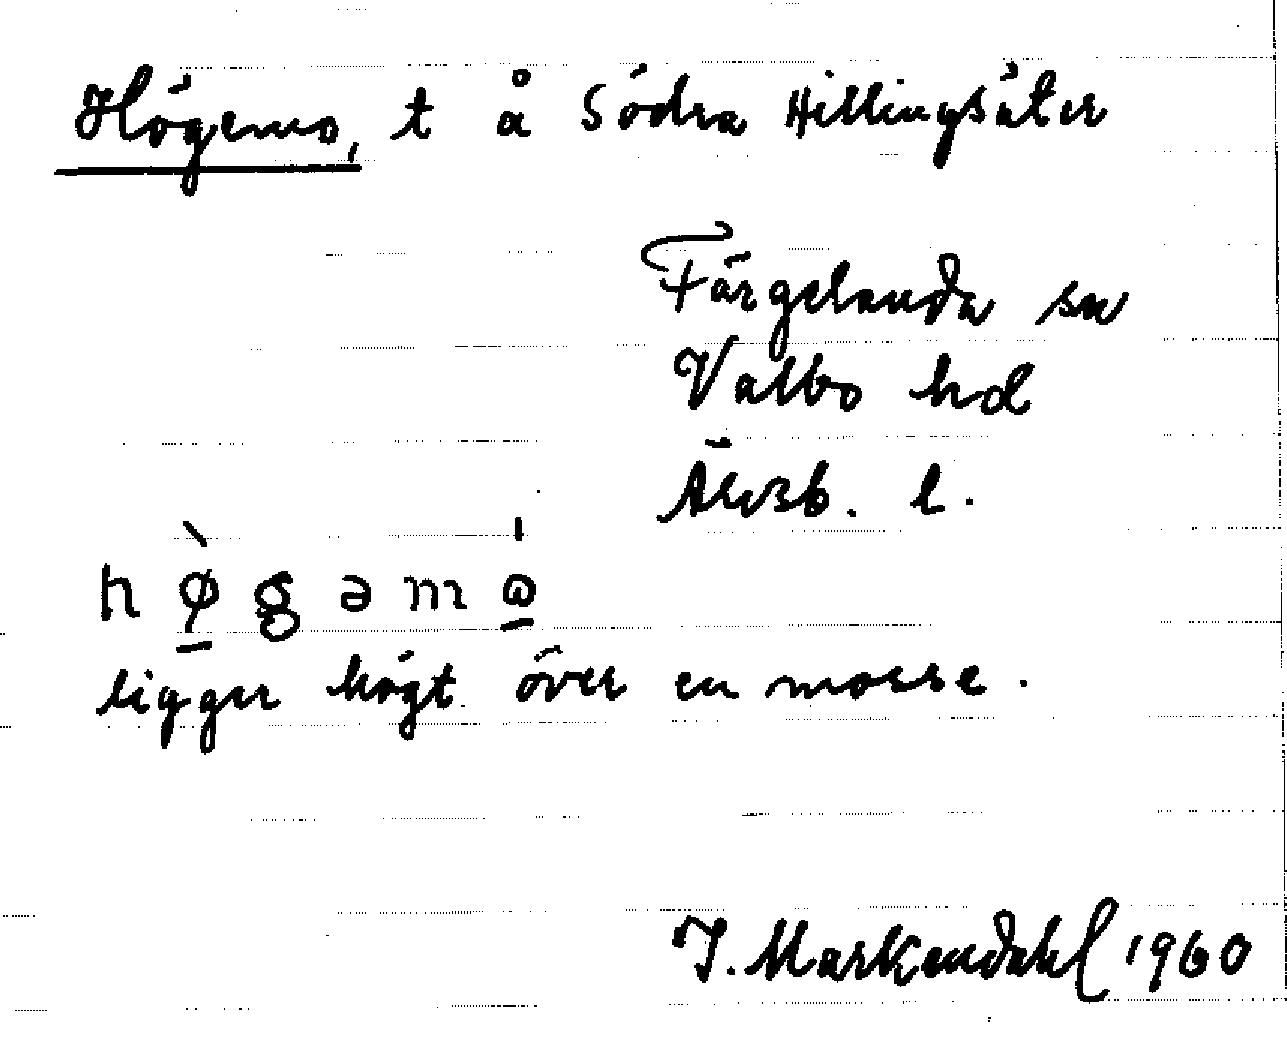 Högemo, t å Södra Hillingsäter
Färgelanda sn
Valbo hd
Älvsb. l.
hø̀gəmɷ̍
ligger högt över en mosse.
J. Markendahl 1960